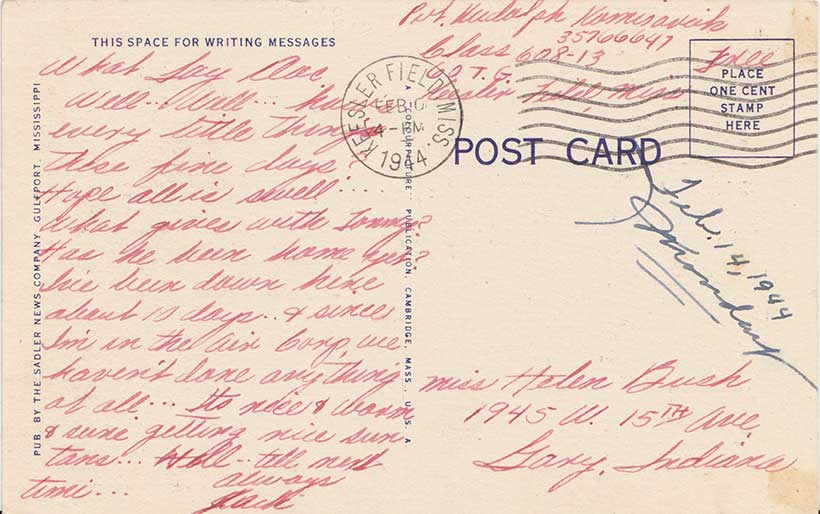 THIS SPACE FOR WRITING MESSAGES
What Say Doc
Well.. Well... how
every little thing
these fine days?
Hope all is swell...
What gives with Tommy?
Has he been home yet?
I've been down here
about 10 days.. & since
I'm in the Air Corp, we
haven't done anything
at all... Its nice & warm
& sure getting nice sun
tans... Well - till next
time... always
Jack
PUB. BY THE SADLER NEWS COMPANY, GULFPORT, MISSISSIPPI
A COLOURPICTURE PUBLICATION, CAMBRIDGE, MASS., U.S.A
Pvt. Rudolph
35766647
Class 608-13
Keesler Field Miss
KEESLER FIELD, MISS.
FEB 10
4 - PM
1944
Free
PLACE
ONE CENT
STAMP
HERE
POST CARD
Feb. 14, 1944
Monday
Miss Helen Bush
1945 W. 15TH Ave
Gary, Indiana